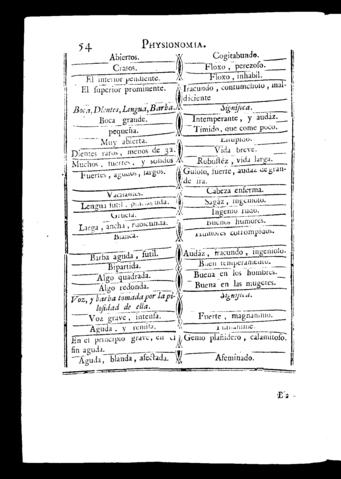 54 PHYSIONOMIA.
Abiertos. Cogitabundo.
Crasos. Floxo, perezoso.
El inferior pendiente. Floxo, inhabil.
El superior prominente. Iracundo, contumelioso, mal-
diciente
Boca, Dientes, Lengua, Barba. Significa.
Boca grande. Intemperante, y audàz.
pequeña. Timido, que come poco.
Muy abierta. Estupido.
Dientes raros, menos de 32. Vida breve.
Muchos, fuertes, y solidos Robustéz, vida larga.
Fuertes, agudos, largos. Guloso, fuerte, audaz de gran-
de ira.
Vacilantes. Cabeza enferma.
Lengua sutil, Sagàz, ingenioso.
Gruesa. Ingenio rudo.
Larga, ancha, rubicunda. Buenos humores.
Blanca. Humores corrompidos.
Barba aguda, sutil. Audàz, iracundo, ingenioso.
Bipartida. Buen temperamento.
Algo quadrada. Buena en los hombres.
Algo redonda. Buena en las mugeres.
Voz, y barba tomada por la pi- Significa.
losidad de ella.
Voz grave, intensa. Fuerte, magnanimo.
Aguda, y remisa. Pusilanime.
En el principio grave, en el Genio plañidero, calamitoso.
fin aguda.
Aguda, blanda, afectada. Afeminado.